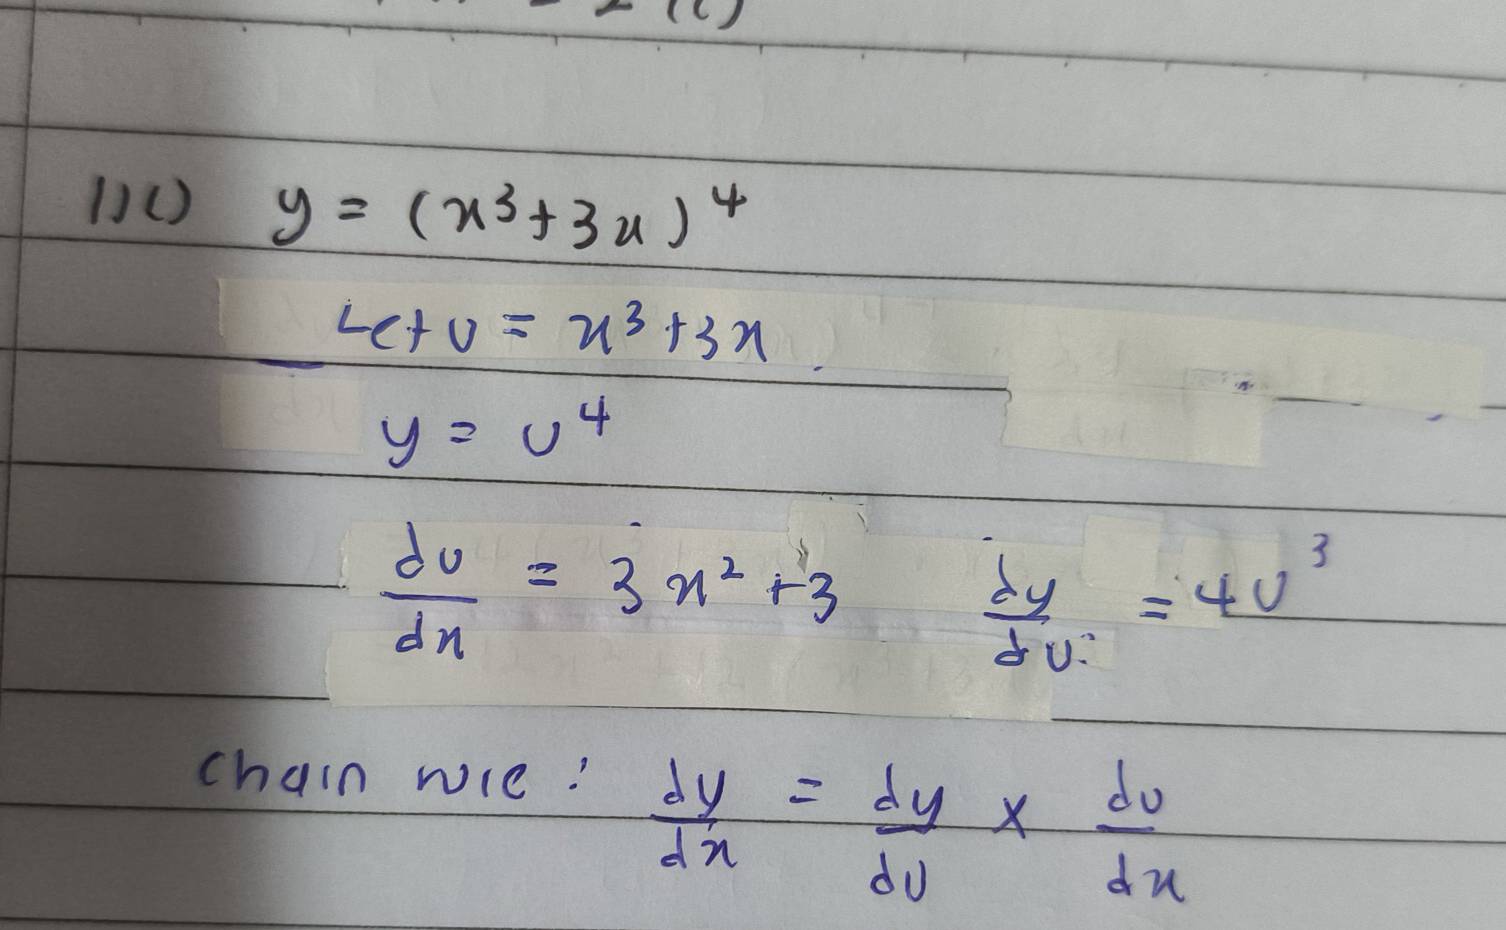 1)c) y = (x³+3x)⁴
Let u = x³+3x
y = u⁴
du/dx = 3x²+3 dy/du = 4u³
chain rule: dy/dx = dy/du × du/dx